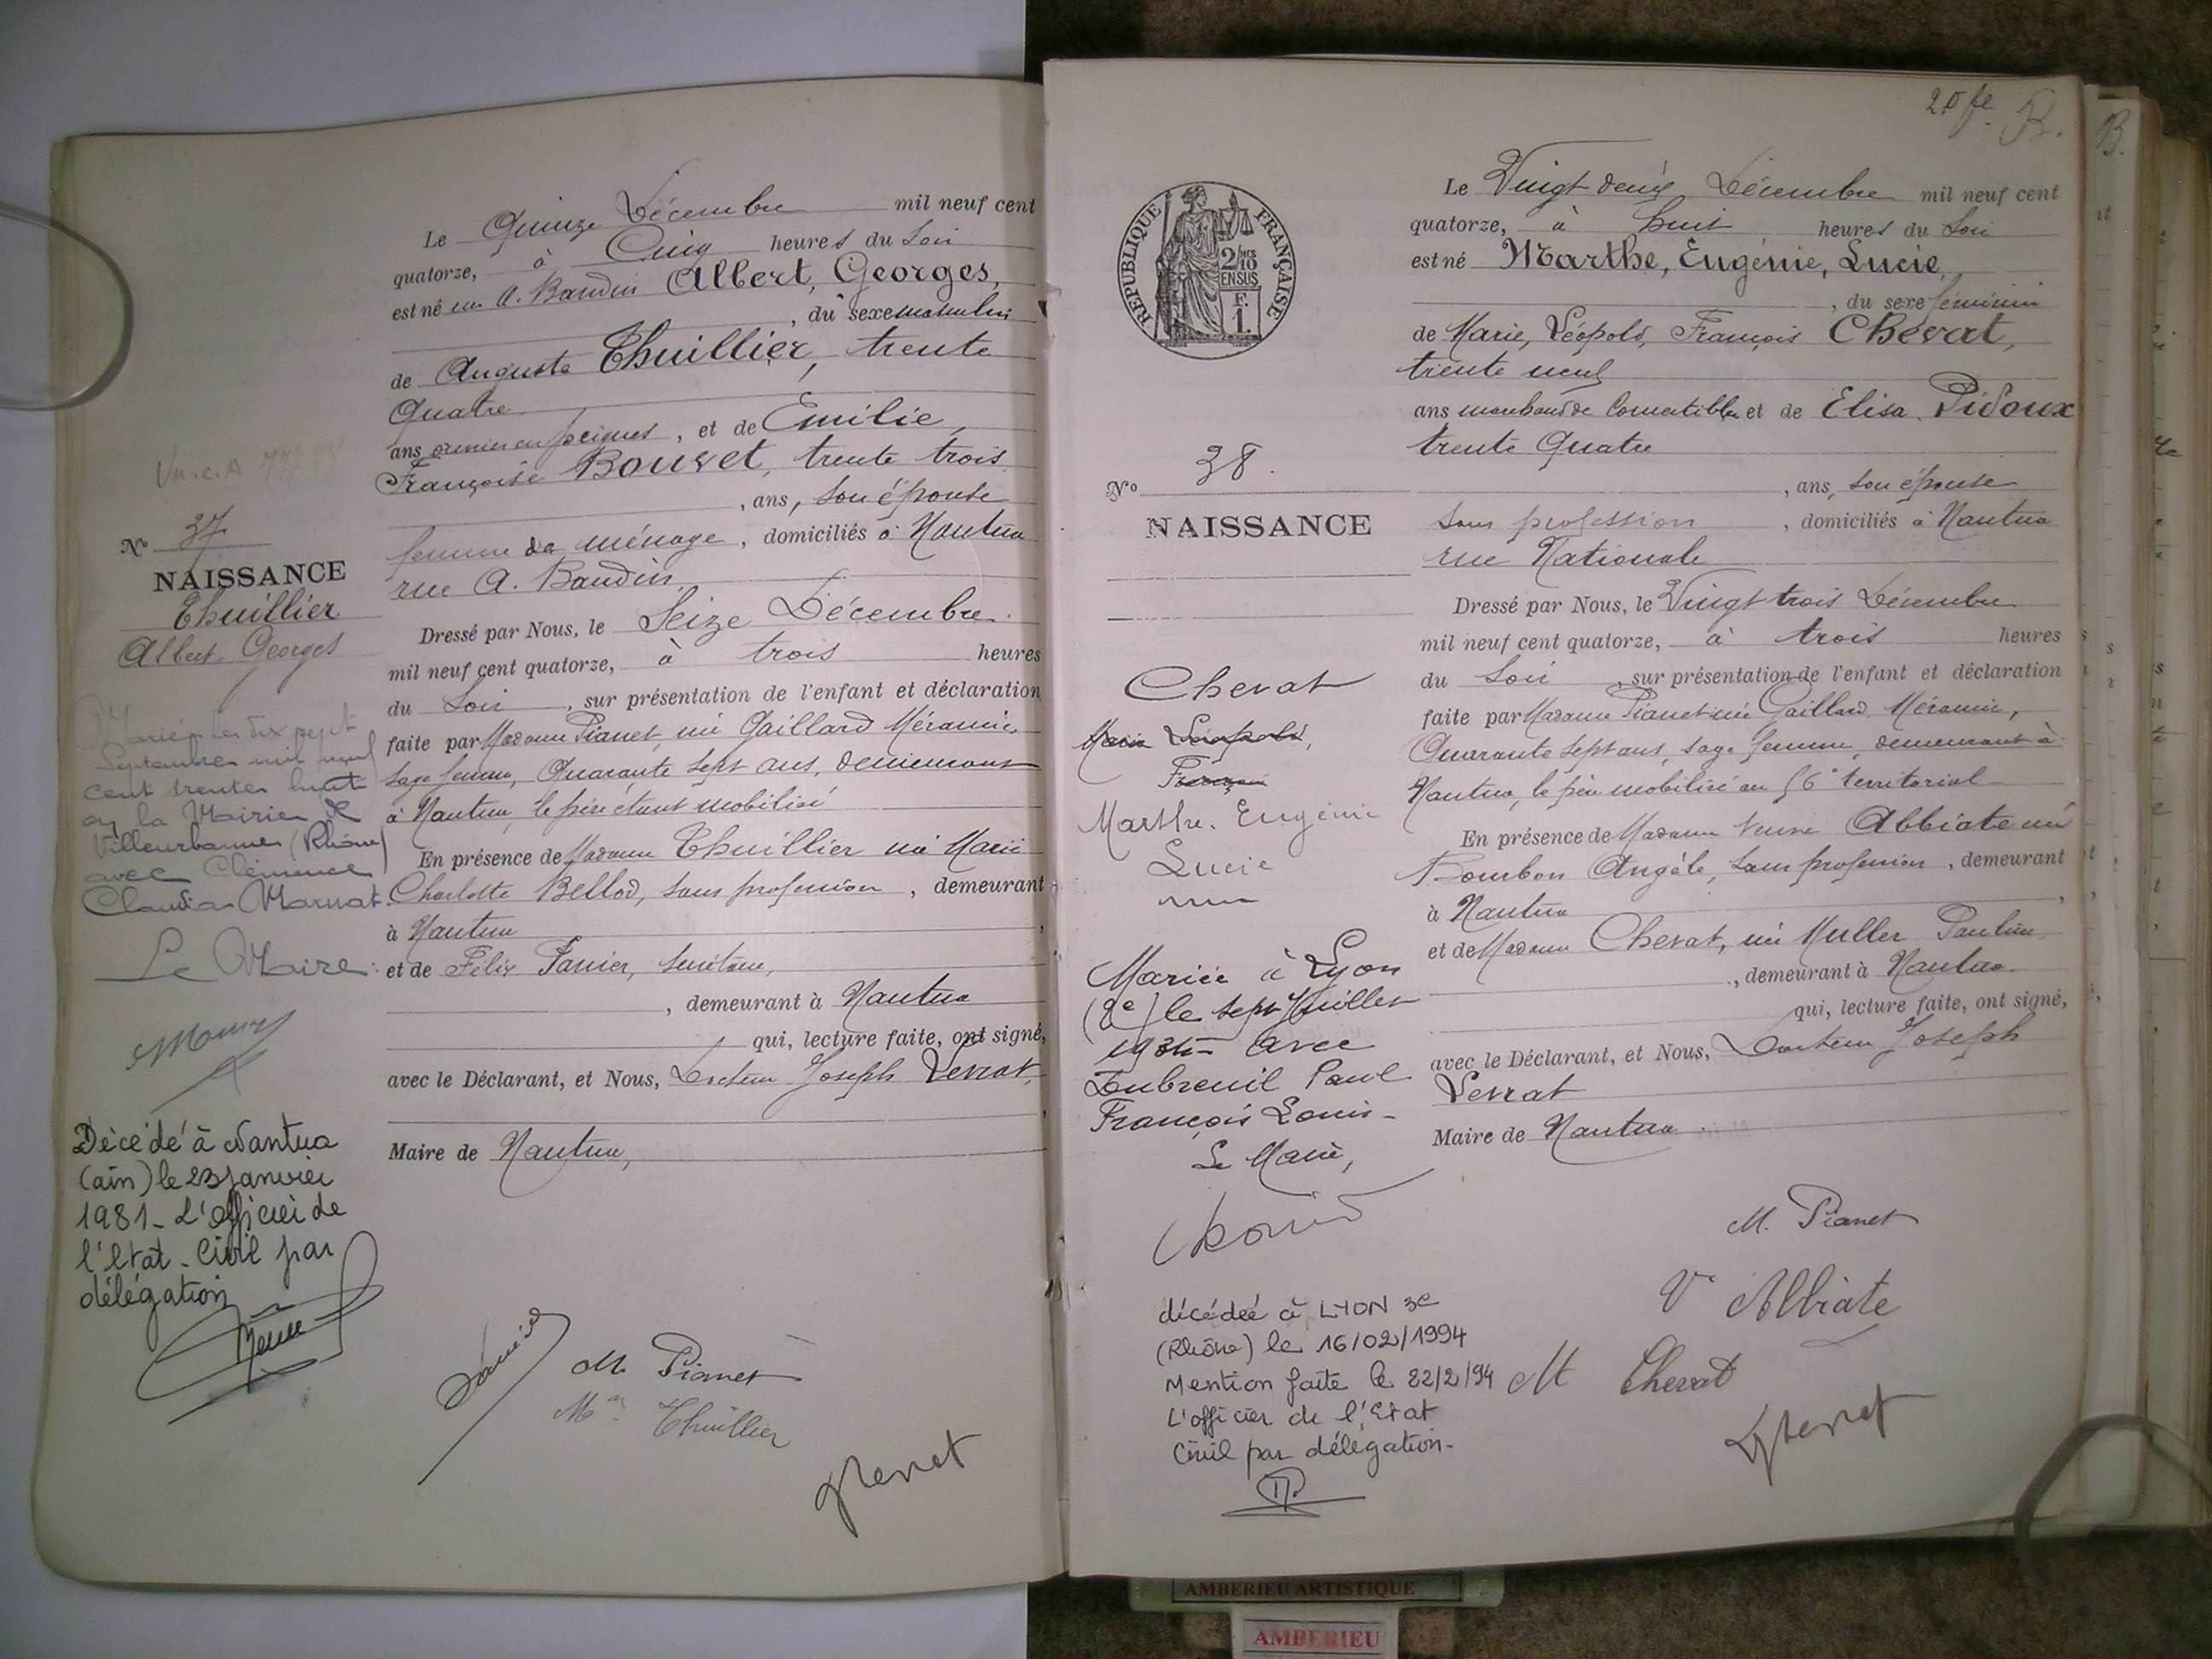 Le Quinze Décembre mil neuf cent
quatorze, à Cinq heures du Soir
est né rue A. Baudin Albert, Georges,
, du sexe masculin
de Auguste Thuillier, trente
Quatre
ans ouvrier en peignes, et de Emilie,
Françoise Bouvet, trente trois
, ans, son épouse
femme de ménage, domiciliés à Nantua
rue A. Baudin,
Dressé par Nous, le Seize Décembre
mil neuf cent quatorze, à trois heures
du Soir, sur présentation de l'enfant et déclaration
faite par Madame Pianet, née Gaillard Méranie,
sage femme, Quarante Sept ans, demeurant
à Nantua, le père étant mobilisé
En présence de Madame Thuillier née Marie
Charlotte Bellod, sans profession, demeurant
à Nantua
et de Félix Panier, Secrétaire,
, demeurant à Nantua
qui, lecture faite, ont signé,
avec le Déclarant, et Nous, Docteur Joseph Levrat,
Maire de Nantua,
M. Pianet
Mme Thuillier
Nº 37
NAISSANCE
Thuillier
Albert Georges
Marié le dix sept
Septembre mil neuf
cent trente huit
en la Mairie de
Villeurbanne (Rhône)
avec Clémence
Claudia Marnat
Le Maire :
Décédé à Nantua
(ain) le 23 Janvier
1981 - L'officier de
l'Etat - Civil par
délégation
20 fe
B.
RÉPUBLIQUE FRANÇAISE
2/10
EN SUS
F.
1.
Le Vingt deux Décembre mil neuf cent
quatorze, à huit heures du Soir
est né Marthe, Eugénie, Lucie,
, du sexe féminin
de Marie, Léopold, François Chevat,
trente neuf
ans marchand de Comestibles et de Elisa Pidoux
trente Quatre
, ans, son épouse
sans profession, domiciliés à Nantua
rue Nationale
Dressé par Nous, le Vingt trois Décembre
mil neuf cent quatorze, à trois heures
du Soir, sur présentation de l'enfant et déclaration
faite par Madame Pianet née Gaillard Méranie,
Quarante Sept ans, sage femme, demeurant à
Nantua, le père mobilisé au 56e territorial
En présence de Madame Veuve Abbiate née
Bourbon Angèle, sans profession, demeurant
à Nantua
et de Madame Chevat, née Muller Pauline
, demeurant à Nantua
qui, lecture faite, ont signé,
avec le Déclarant, et Nous, Docteur Joseph
Levrat
Maire de Nantua.
M. Pianet
Ve Abbiate
M Chevat
Nº 38.
NAISSANCE
Chevat
Marie Léopold,
François
Marthe. Eugénie
Lucie
Mariée à Lyon
(2e) le sept Juillet
avec
Dubreuil Paul
François Louis -
Le Maire,
décédée à LYON 3e
(Rhône) le 16/02/1994
Mention faite le 22/2/94
L'officier de l'Etat
Civil par délégation -
AMBERIEU ARTISTIQUE
AMBERIEU